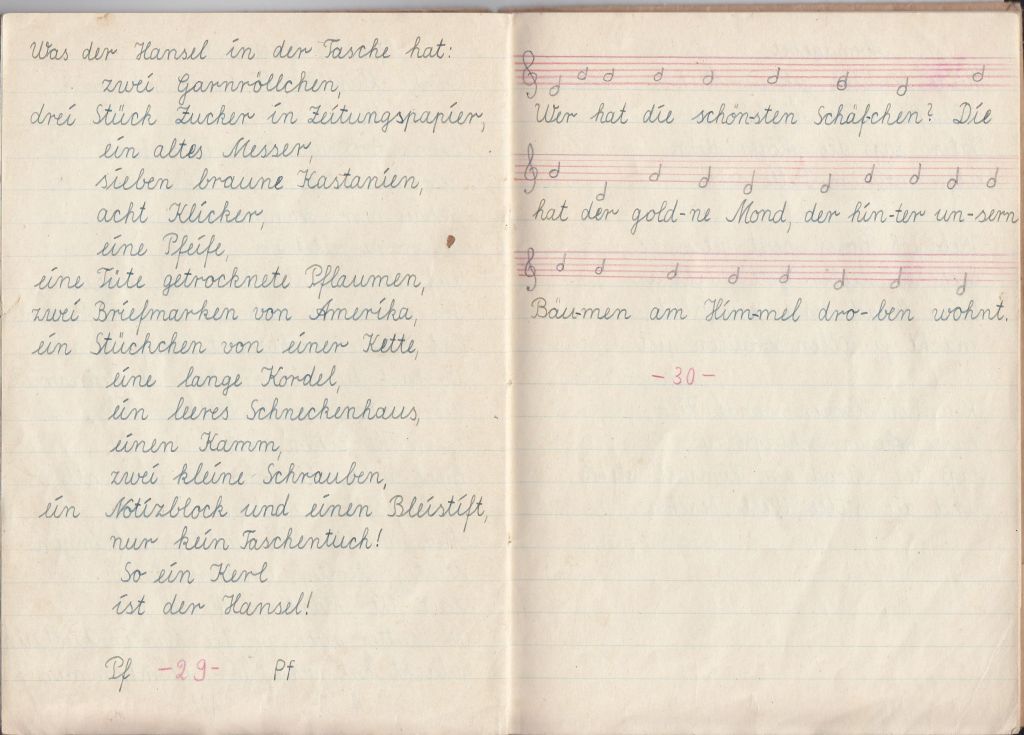 Was der Hansel in der Tasche hat:
zwei Garnröllchen,
drei Stück Zucker in Zeitungspapier,
ein altes Messer,
sieben braune Kastanien,
acht Klicker,
eine Pfeife,
eine Tüte getrocknete Pflaumen,
zwei Briefmarken von Amerika,
ein Stückchen von einer Kette,
eine lange Kordel,
ein leeres Schneckenhaus,
einen Kamm,
zwei kleine Schrauben,
ein Notizblock und einen Bleistift,
nur kein Taschentuch!
So ein Kerl
ist der Hansel!
Pf -29- Pf
Wer hat die schön-sten Schäf-chen? Die
hat der gold-ne Mond, der hin-ter un-sern
Bäu-men am Him-mel dro-ben wohnt.
-30-